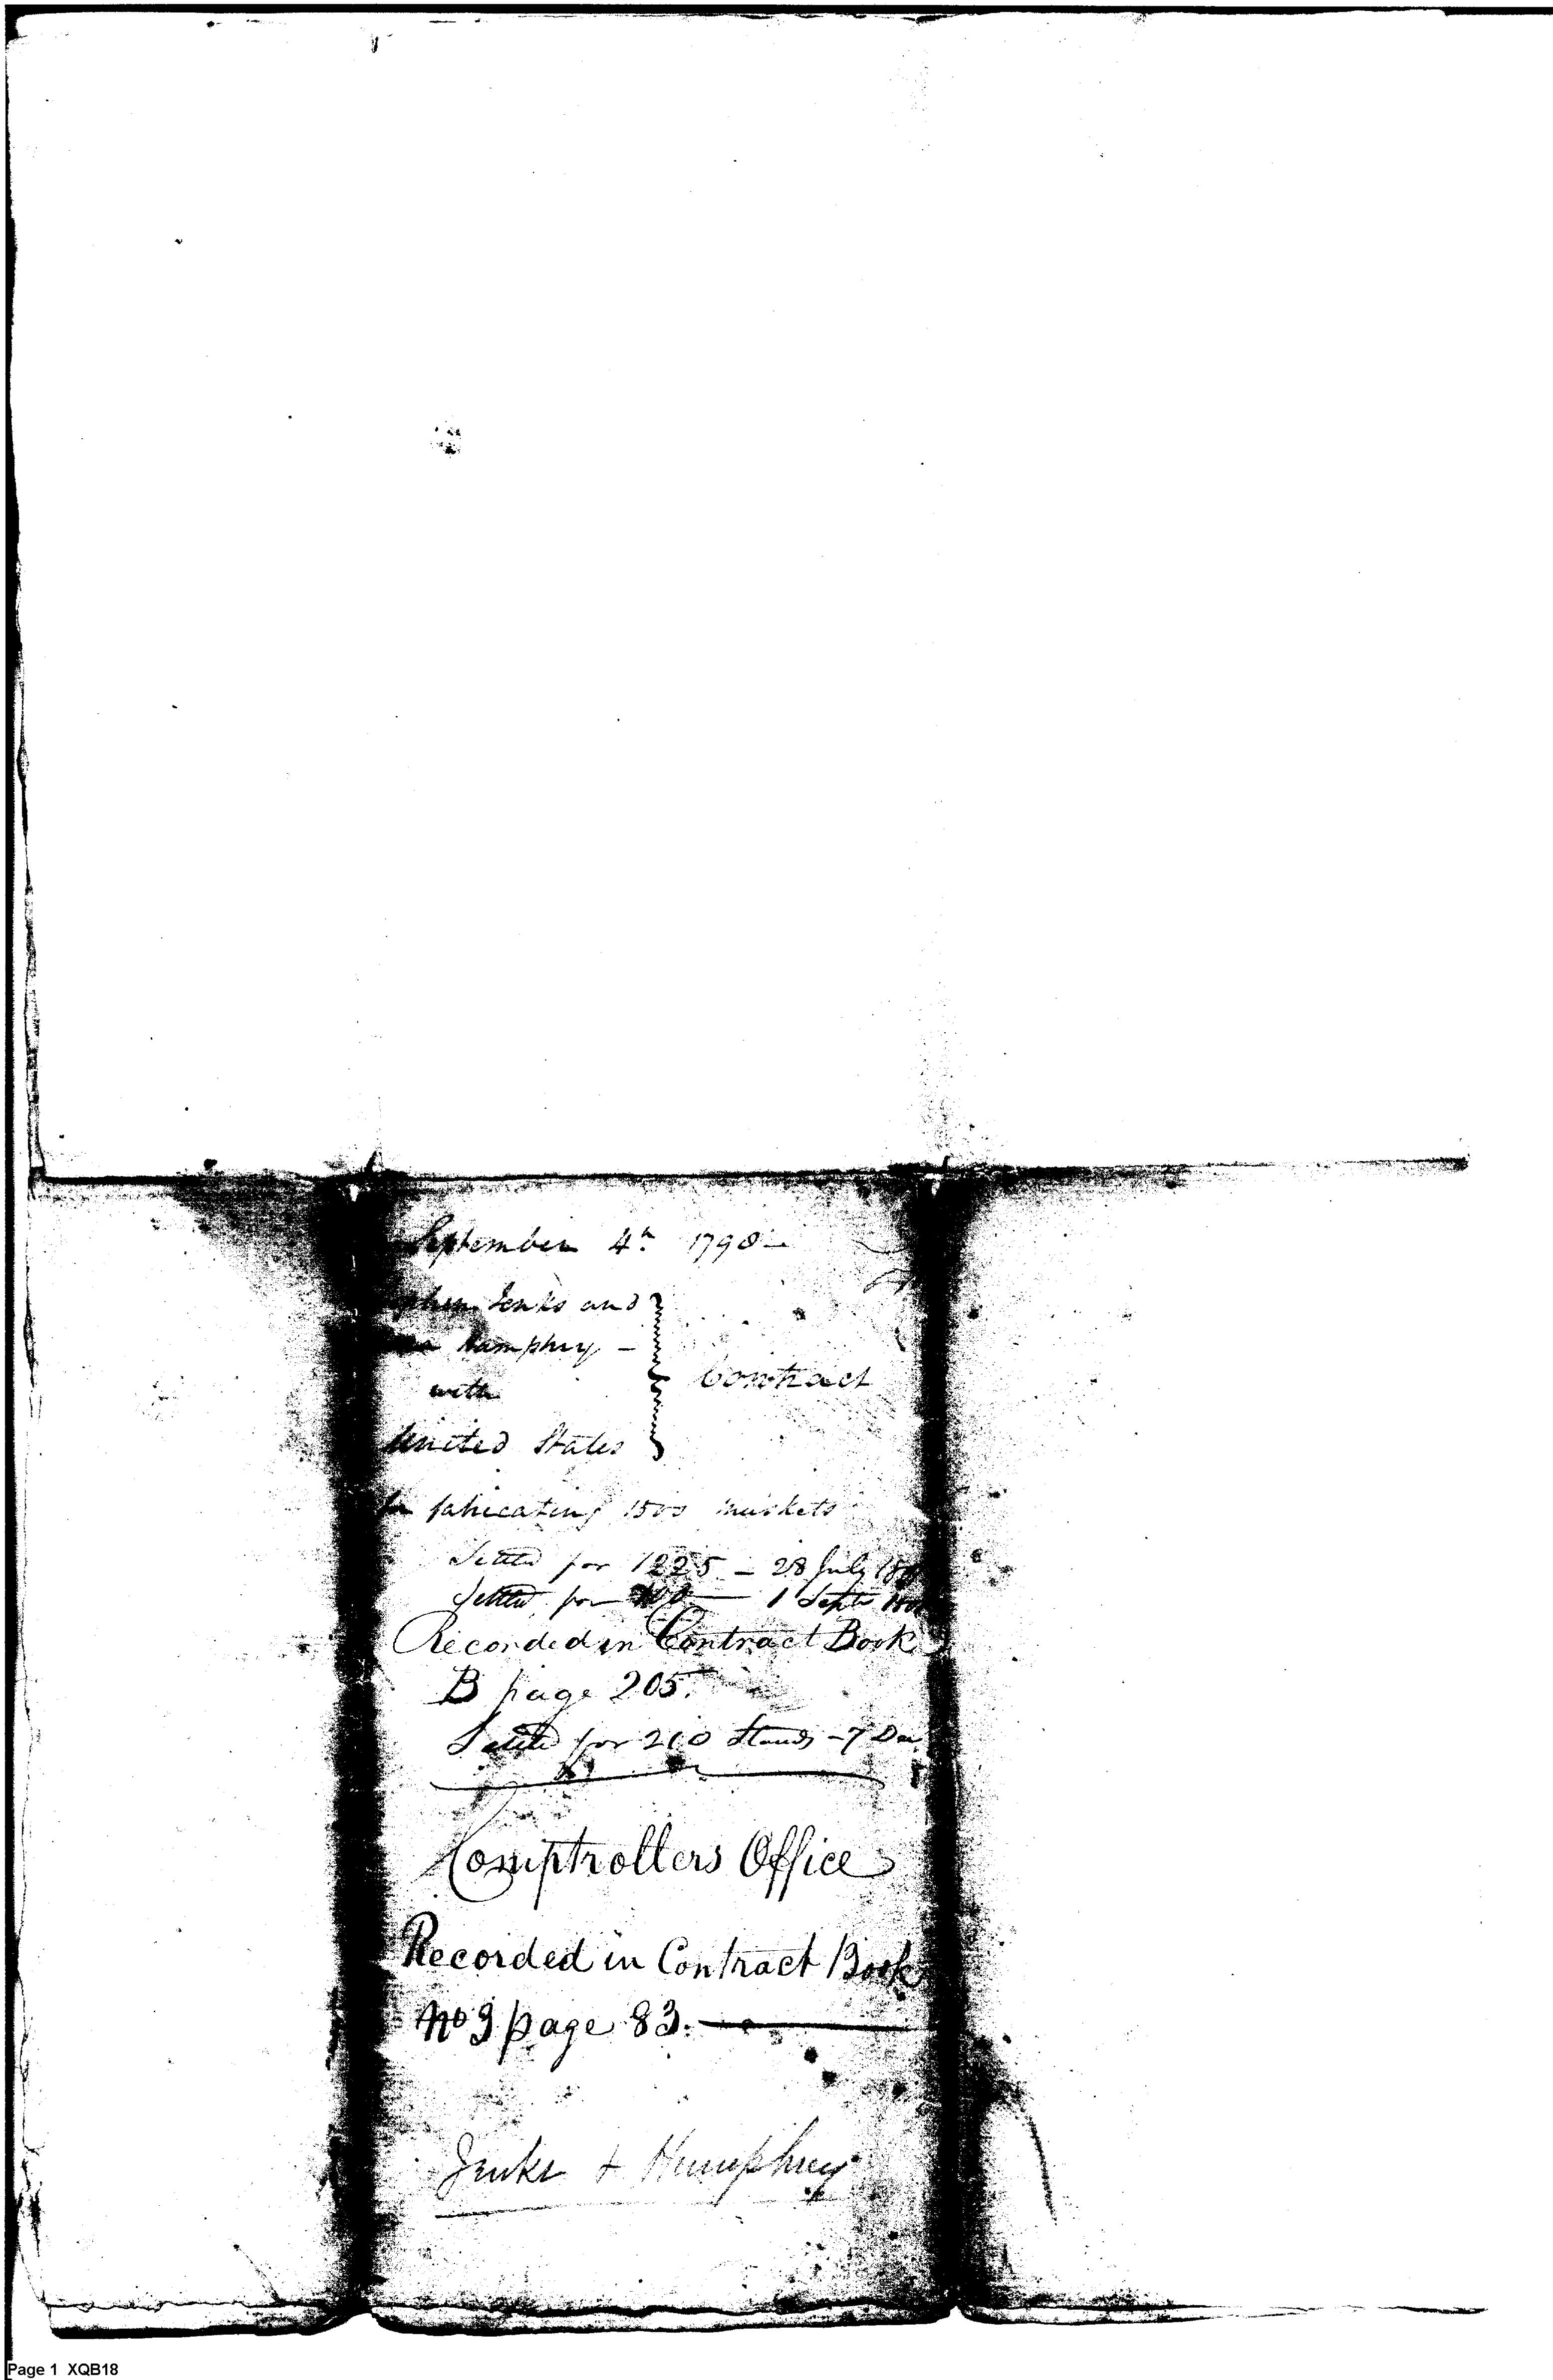 September 4th 1798 –
Jenks and
Humphry –
with
United States
Contract
fabricating 1500 muskets
Settled for 1225 – 28 July
Settled for 1 Septr
Recorded in Contract Book
B page 205.
Settled for 210 Stands – 7 Dec
Comptrollers Office
Recorded in Contract Book
No 3 page 83.
Jenks & Humphrey
Page 1 XQB18